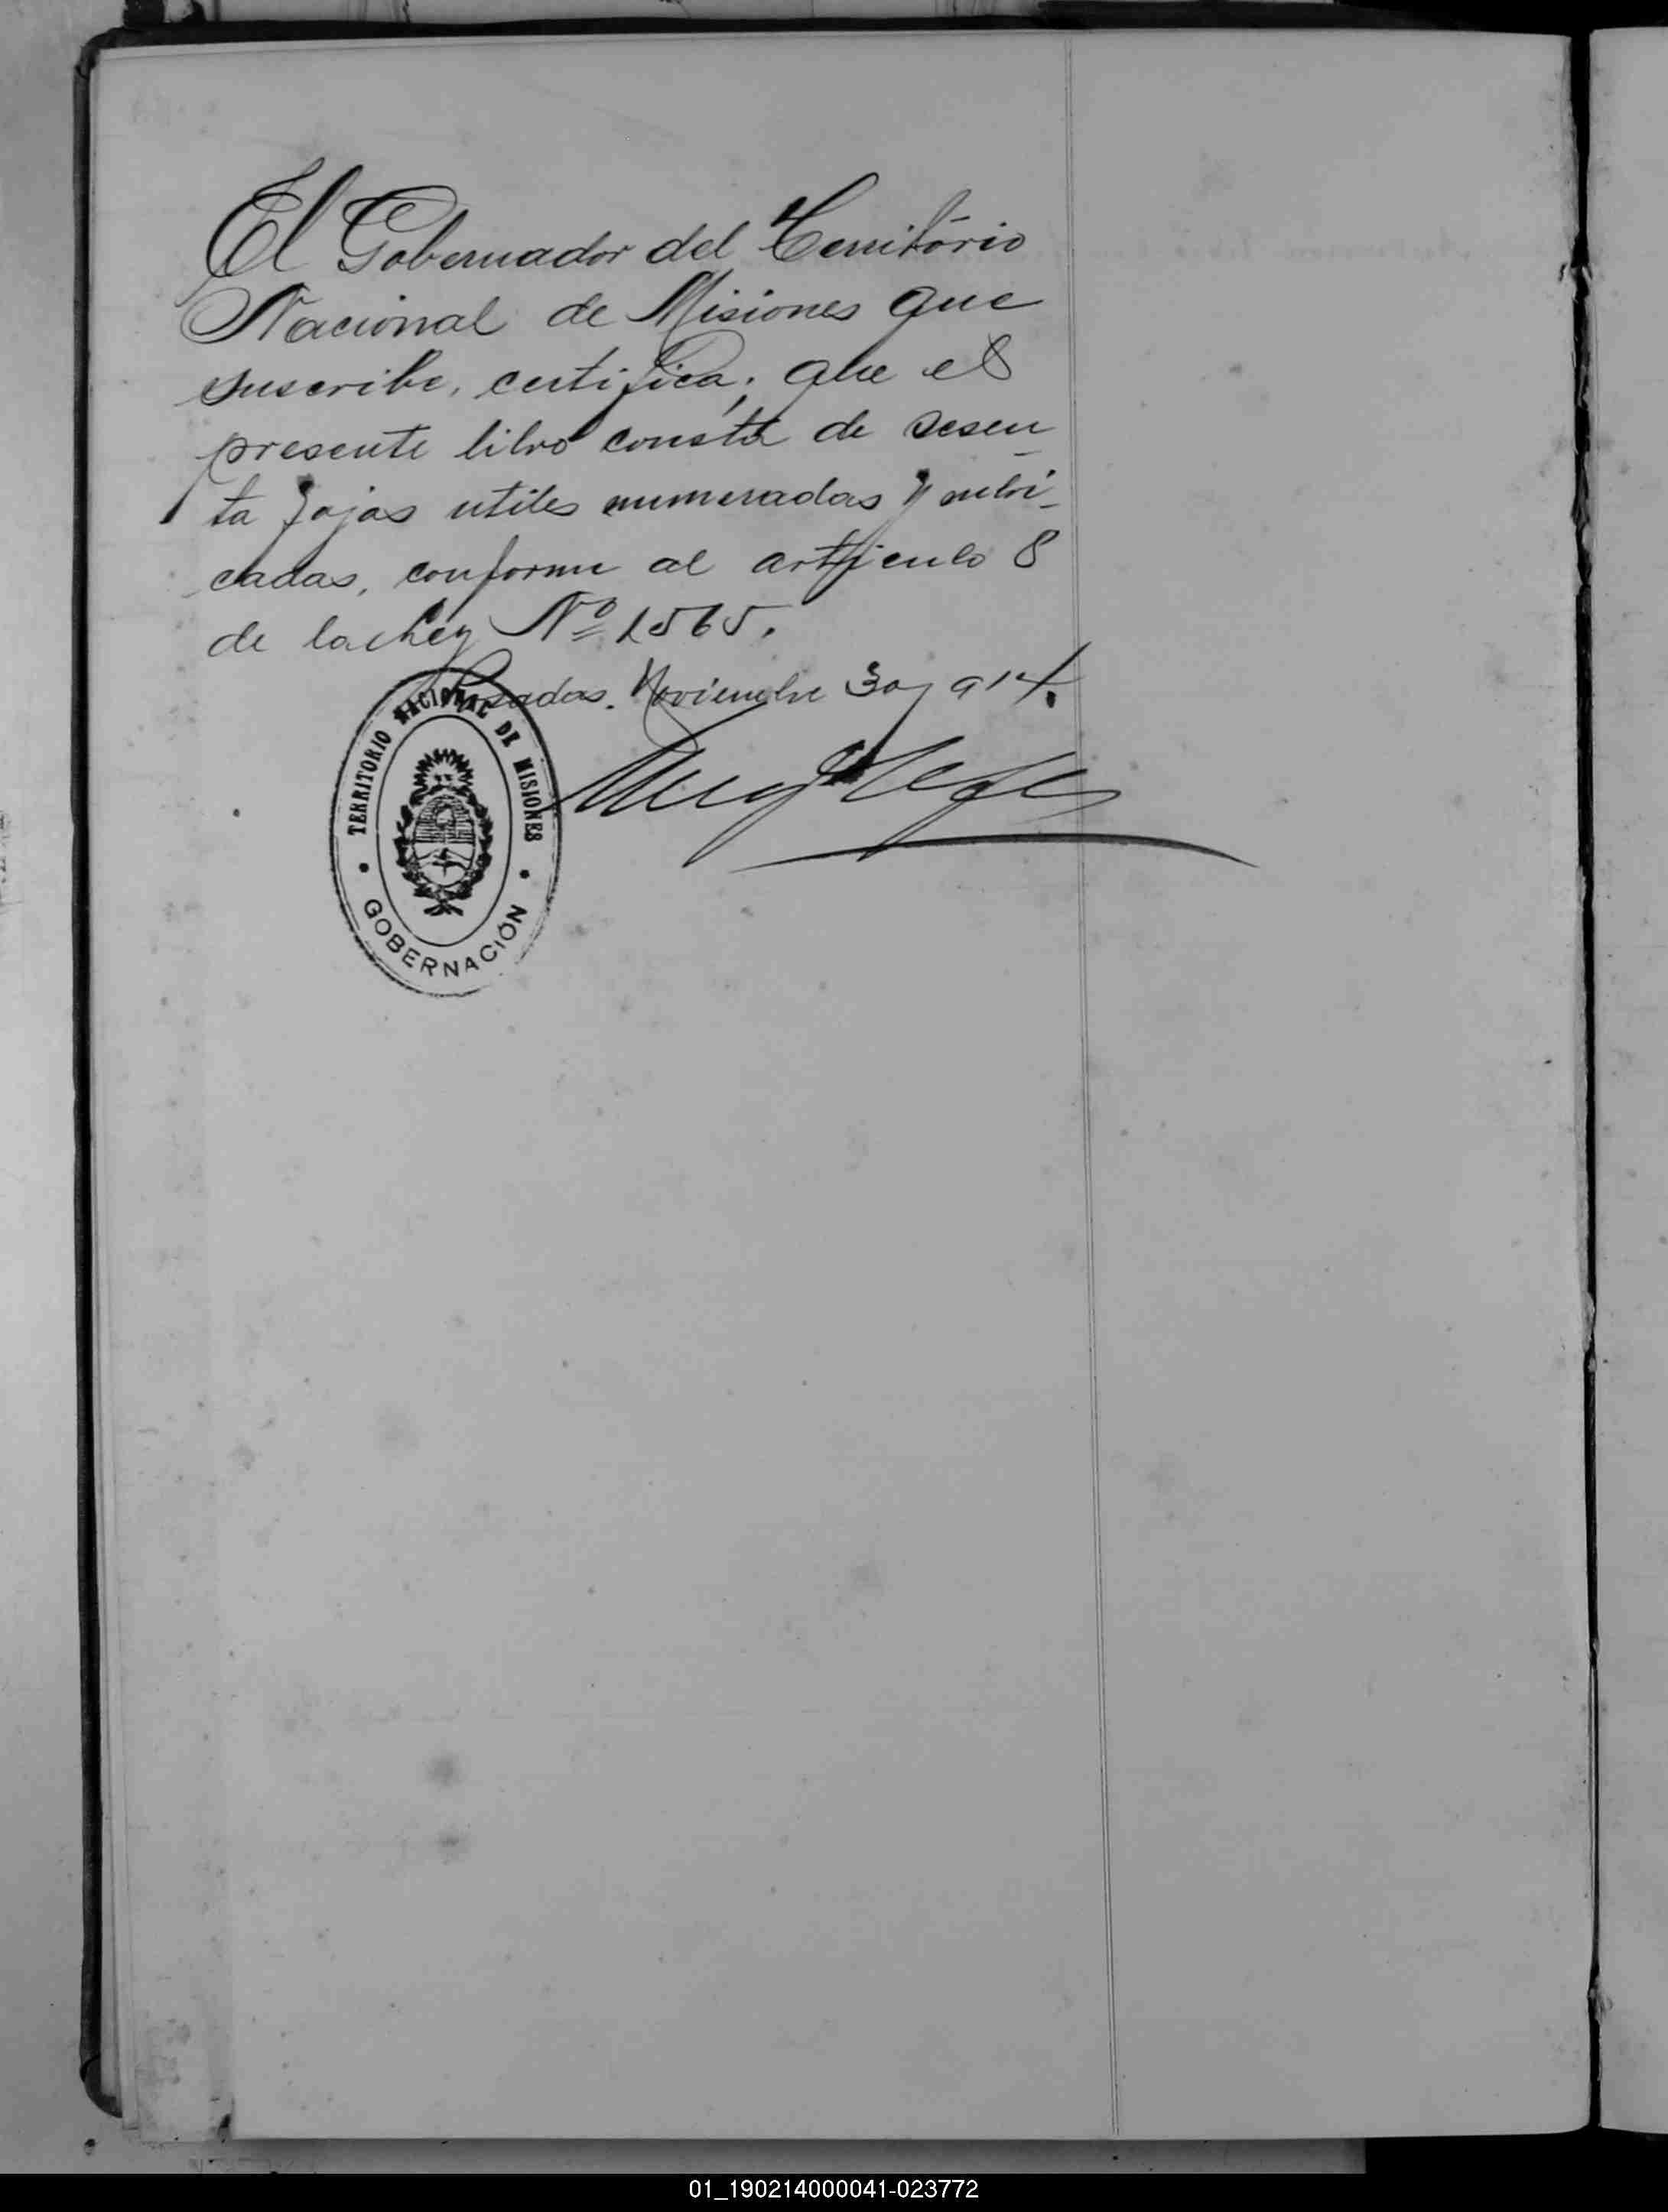 El Gobernador del Territorio
Nacional de Misiones que
suscribe, certifica; que el
presente libro consta de sesen
ta fojas utiles numeradas y rubri-
cadas, conforme al artficulo 8
de la Ley Nº 1565.
Posadas. Noviembre 30/914.
TERRITORIO NACIONAL DE MISIONES
GOBERNACIÓN
01_190214000041-023772